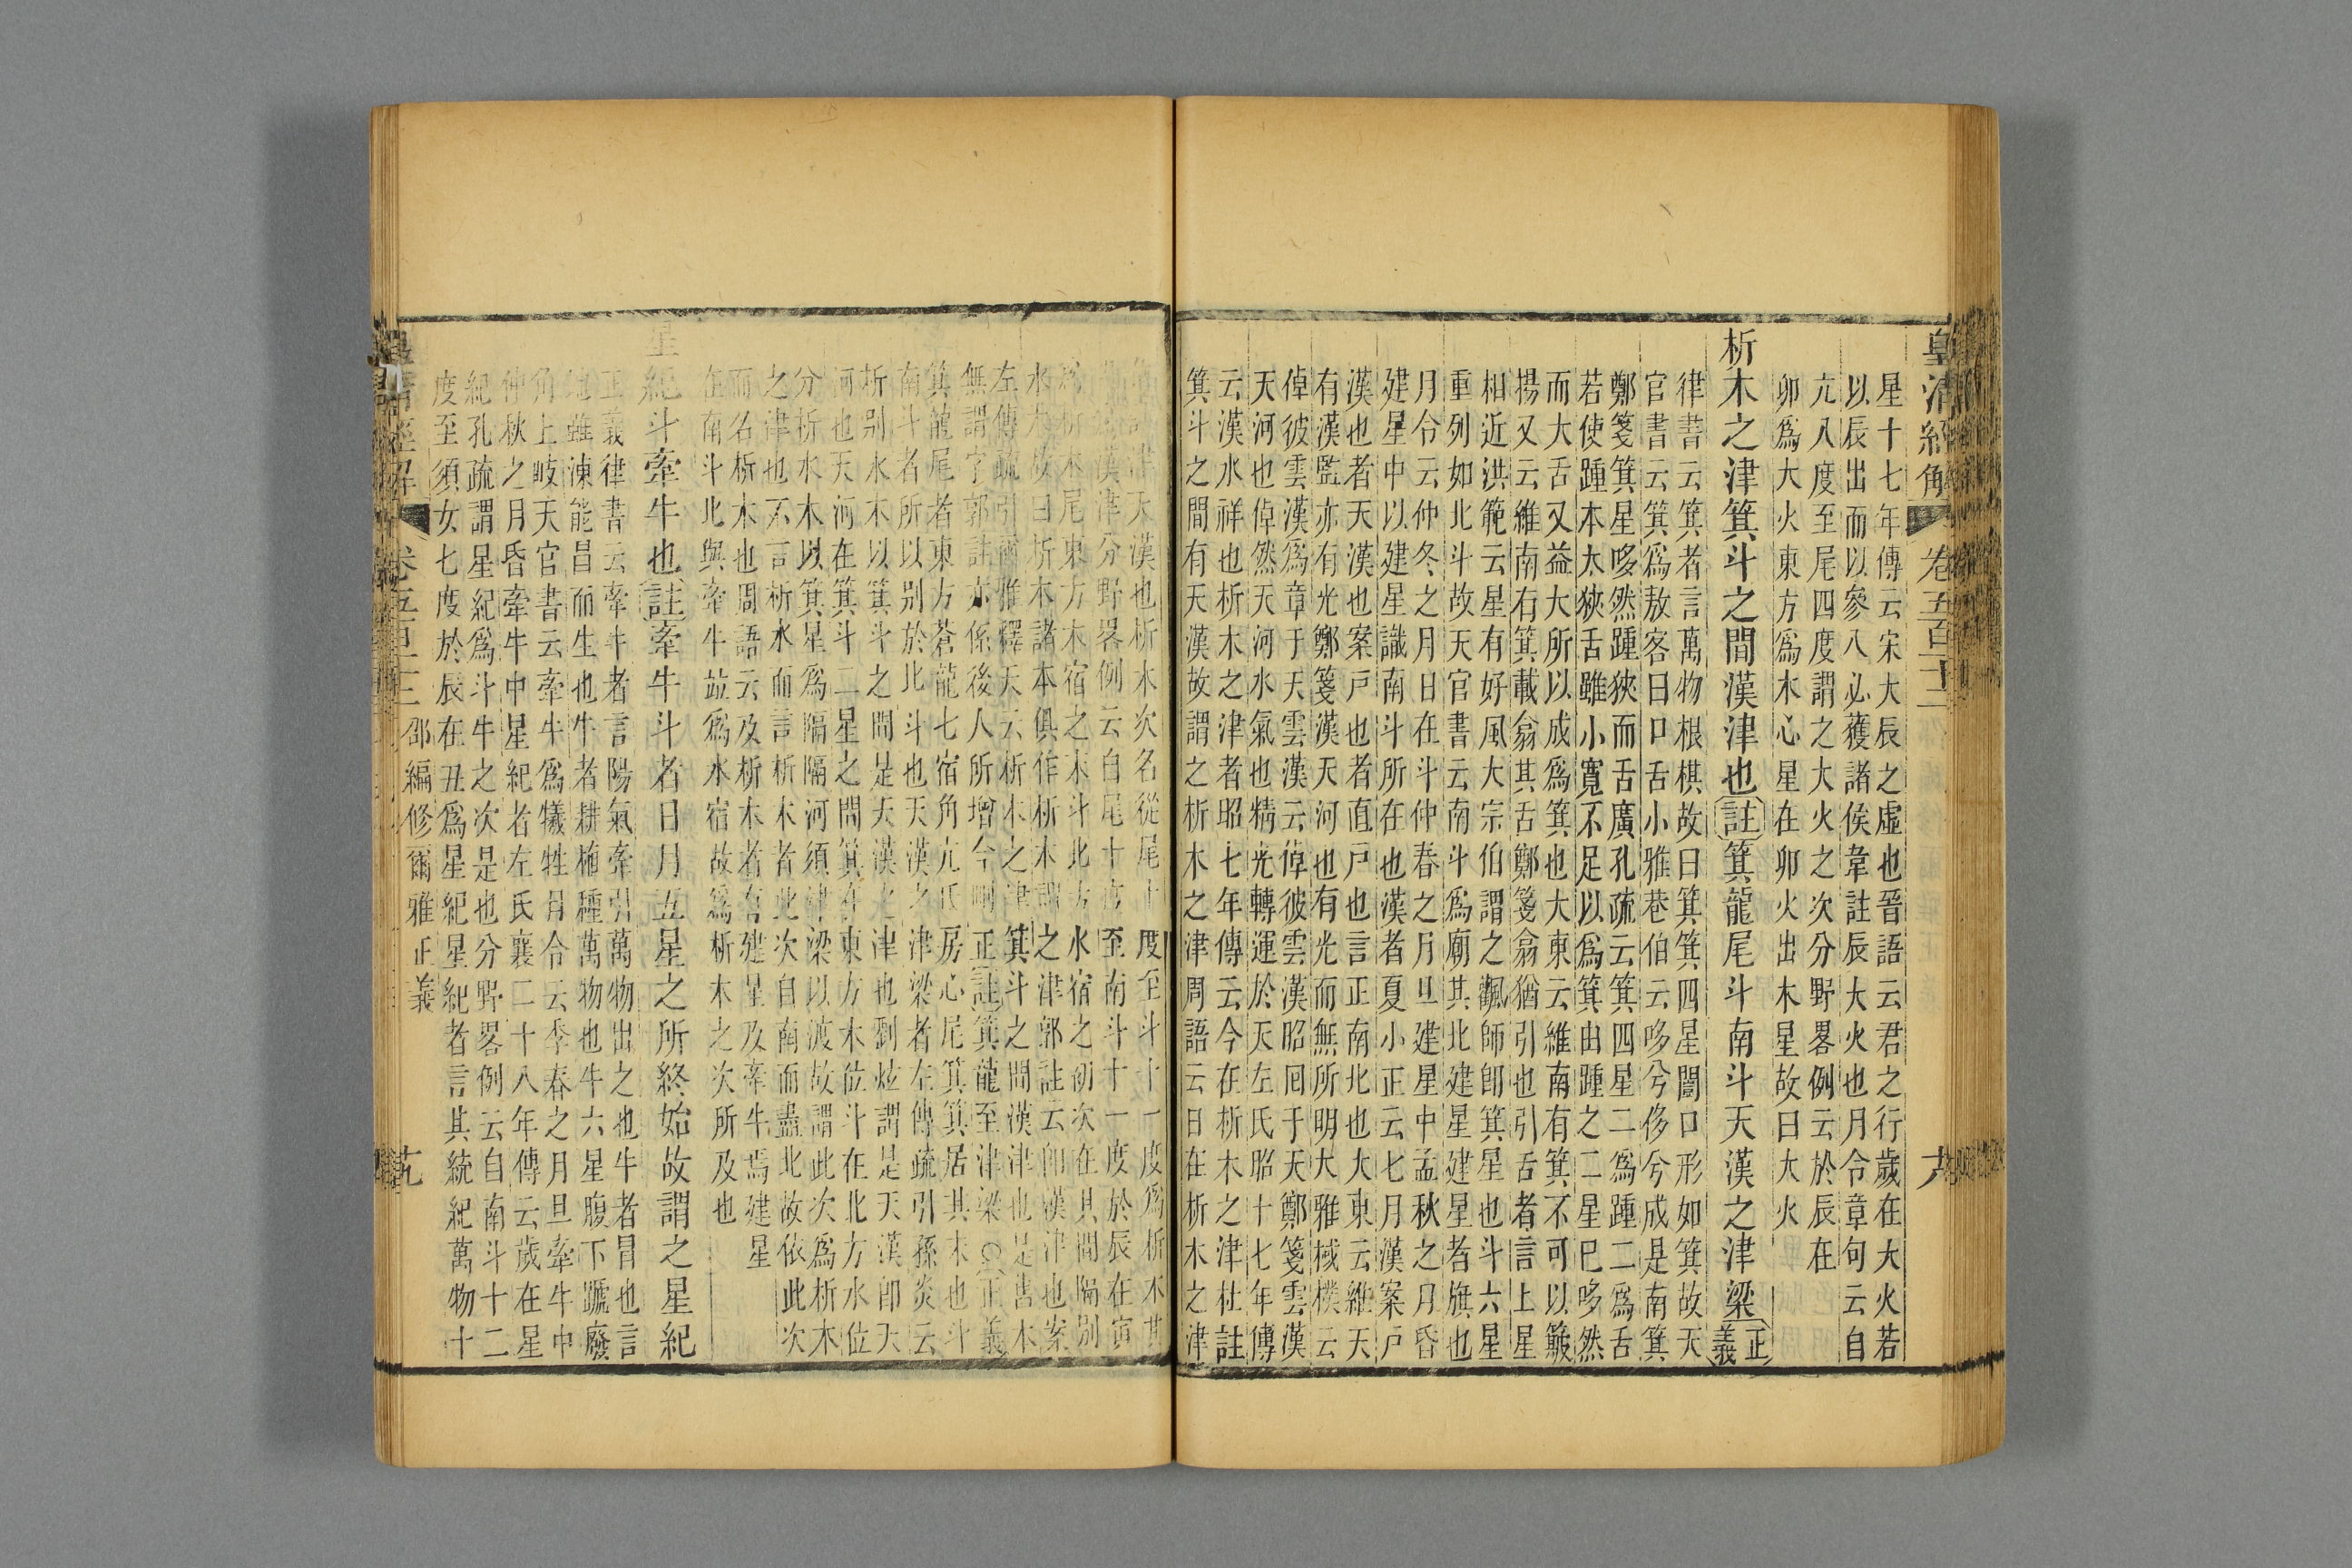 皇清經解 卷五百十三
星十七年傳云宋大辰之虛也晉語云君之行歲在大火若
以辰出而以參入必獲諸侯韋註辰大火也月令章句云自
亢八度至尾四度謂之大火之次分野畧例云於辰在
卯爲大火東方爲木心星在卯火出木星故曰大火
析木之津箕斗之間漢津也註箕龍尾斗南斗天漢之津梁正義
律書云箕者言萬物根棋故曰箕箕四星闓口形如箕故天
官書云箕爲敖客曰口舌小雅巷伯云哆兮侈兮成是南箕
鄭箋箕星哆然踵狹而舌廣孔疏云箕四星二爲踵二爲舌
若使踵本太狹舌雖小寬不足以爲箕由踵之二星已哆然
而大舌又益大所以成爲箕也大東云維南有箕不可以簸
揚又云維南有箕載翕其舌鄭箋翕猶引也引舌者言上星
相近洪範云星有好風大宗伯謂之飌師卽箕星也斗六星
重列如北斗故天官書云南斗爲廟其北建星建星者旗也
月令云仲冬之月日在斗仲春之月旦建星中孟秋之月昏
建星中以建星識南斗所在也漢者夏小正云七月漢案戸
漢也者天漢也案戸也者直戸也言正南北也大東云維天
有漢監亦有光鄭箋漢天河也有光而無所明大雅棫樸云
倬彼雲漢爲章于天雲漢云倬彼雲漢昭囘于天鄭箋雲漢
天河也倬然天河水氣也精光轉運於天左氏昭十七年傳
云漢水祥也析木之津者昭七年傳云今在析木之津杜註
箕斗之間有天漢故謂之析木之津周語云日在析木之津
津天漢也析木次名從尾十度至斗十一度爲析木其
漢津分野畧例云自尾十度至南斗十一度於辰在寅
爲析木尾東方木宿之末斗北方水宿之初次在其間隔別
水木故曰析木諸本俱作析木謂之津郭註云卽漢津也案
左傳疏引爾雅釋天云析木之津箕斗之間漢津也是舊本
無謂字郭註亦係後人所增今刪正註箕龍至津梁○正義
箕龍尾者東方蒼龍七宿角亢氐房心尾箕箕居其末也斗
南斗者所以别於北斗也天漢之津梁者左傳疏引孫炎云
析别水木以箕斗之間是天漢之津也劉炫謂是天漢卽天
河也天河在箕斗二星之間箕在東方木位斗在北方水位
分析水木以箕星爲隔隔河須津梁以渡故謂此次爲析木
之津也不言析水而言析木者此次自南而盡北故依此次
而名析木也周語云及析木者有建星及牽牛焉建星
在南斗北與牽牛竝爲水宿故爲析木之次所及也
星紀斗牽牛也註牽牛斗者日月五星之所終始故謂之星紀
正義律書云牽牛者言陽氣牽引萬物出之也牛者冒也言
地雖凍能冒而生也牛者耕植種萬物也牛六星腹下蹏廢
角上岐天官書云牽牛爲犧牲月令云季春之月旦牽牛中
仲秋之月昏牽牛中星紀者左氏襄二十八年傳云歲在星
紀孔疏謂星紀爲斗牛之次是也分野畧例云自南斗十二
度至須女七度於辰在丑爲星紀星紀者言其統紀萬物十
皇清經解 卷五百十三 邵編修爾雅正義